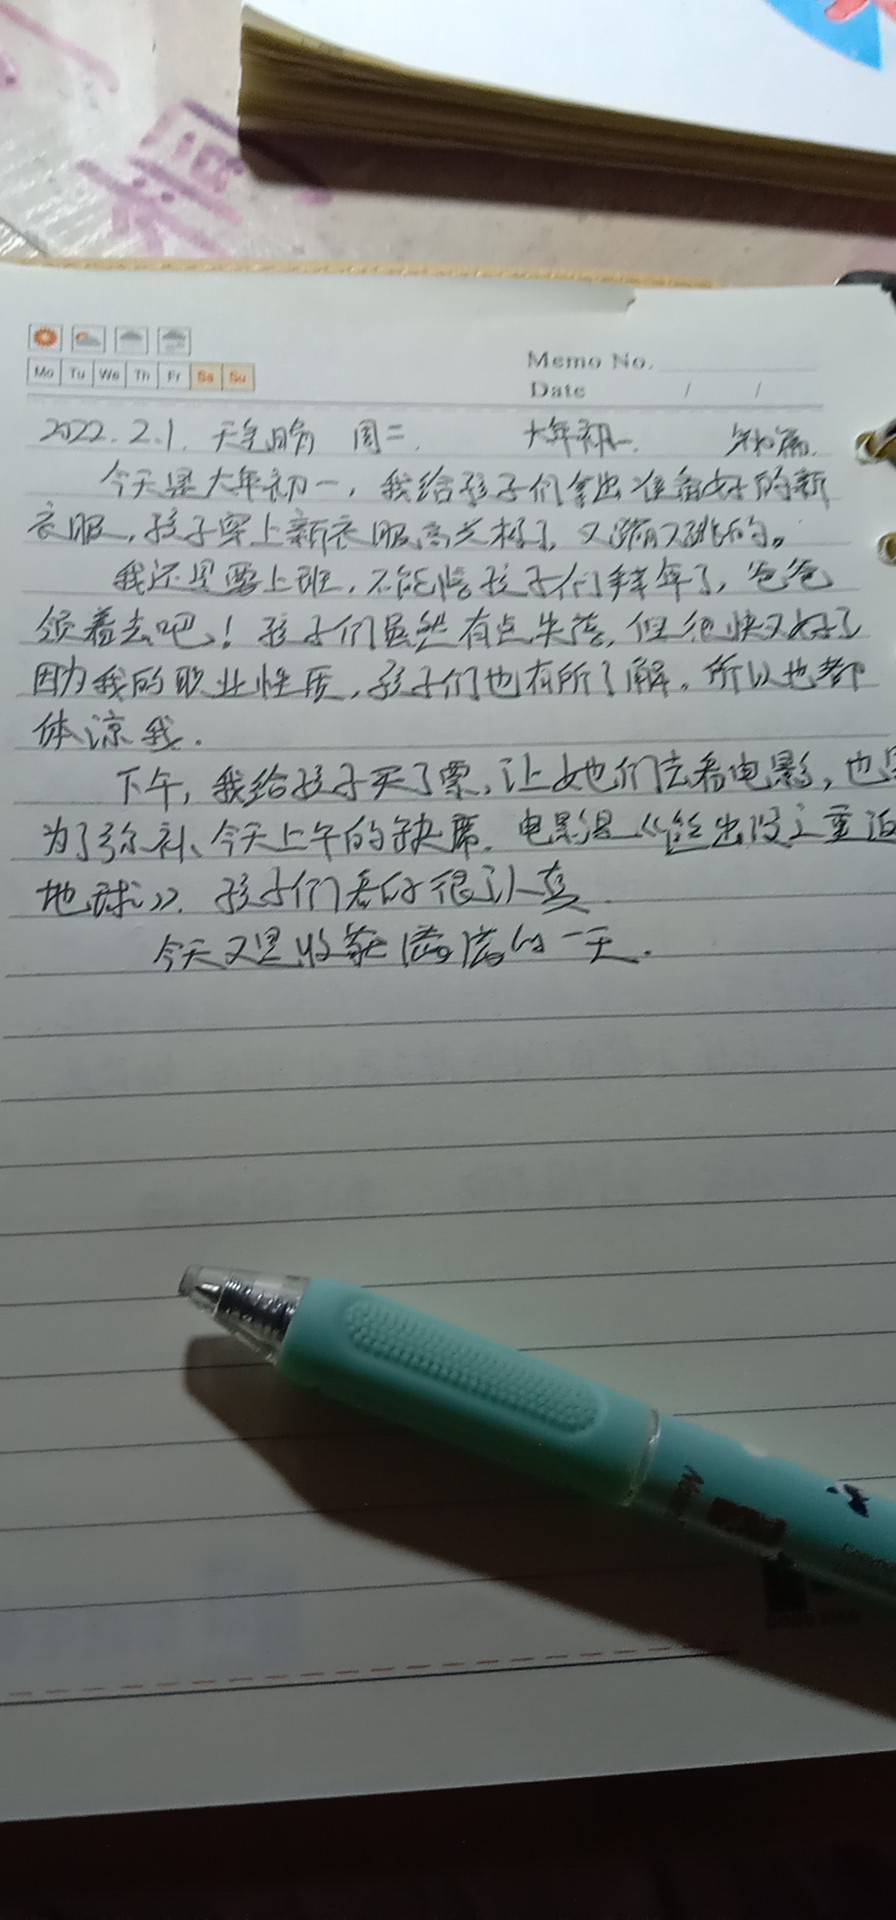 Mo Tu We Th Fr Sa Su
Memo No.
Date / /
2022.2.1. 天气晴 周二. 大年初一.
今天是大年初一，我给孩子们拿出准备好的新
衣服，孩子穿上新衣服高兴极了，又蹦又跳的。
我还是要上班，不能陪孩子们拜年了，爸爸
领着去吧！孩子们虽然有点失落，但很快又好了
因为我的职业性质，孩子们也有所了解。所以也都
体凉我.
下午，我给孩子买了票，让她们去看电影，也是
为了弥补今天上午的缺席. 电影是《 重返
地球》. 孩子们看的很认真
今天又是收获满满的一天.